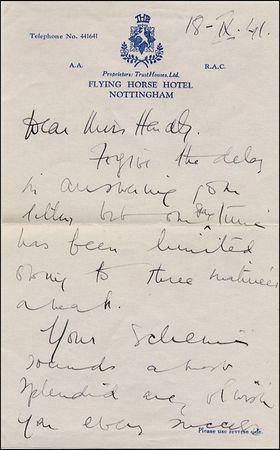 18-IX.41.
Telephone No. 441641
THR
A.A.
R.A.C.
Proprietors: Trust Houses, Ltd.
FLYING HORSE HOTEL
NOTTINGHAM
Dear Miss Hardy.
Forgive the delay
in answering your
letter but our time
has been limited
owing to three matinees
a week.
Your scheme
sounds a most
splendid one, & I wish
you every success
Please use reverse side.